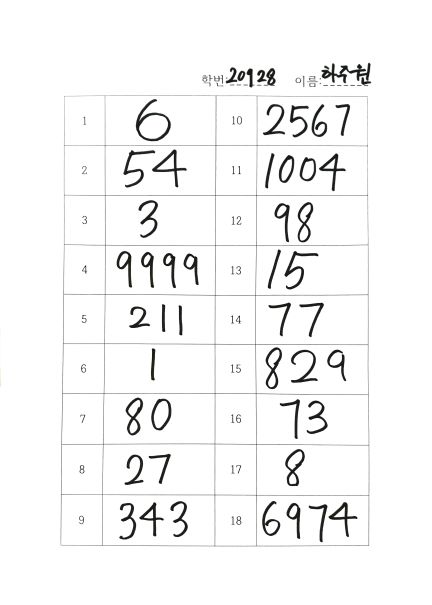 학번:20928 이름:하주원
1 6 10 2567
2 54 11 1004
3 3 12 98
4 9999 13 15
5 211 14 77
6 1 15 829
7 80 16 73
8 27 17 8
9 343 18 6974